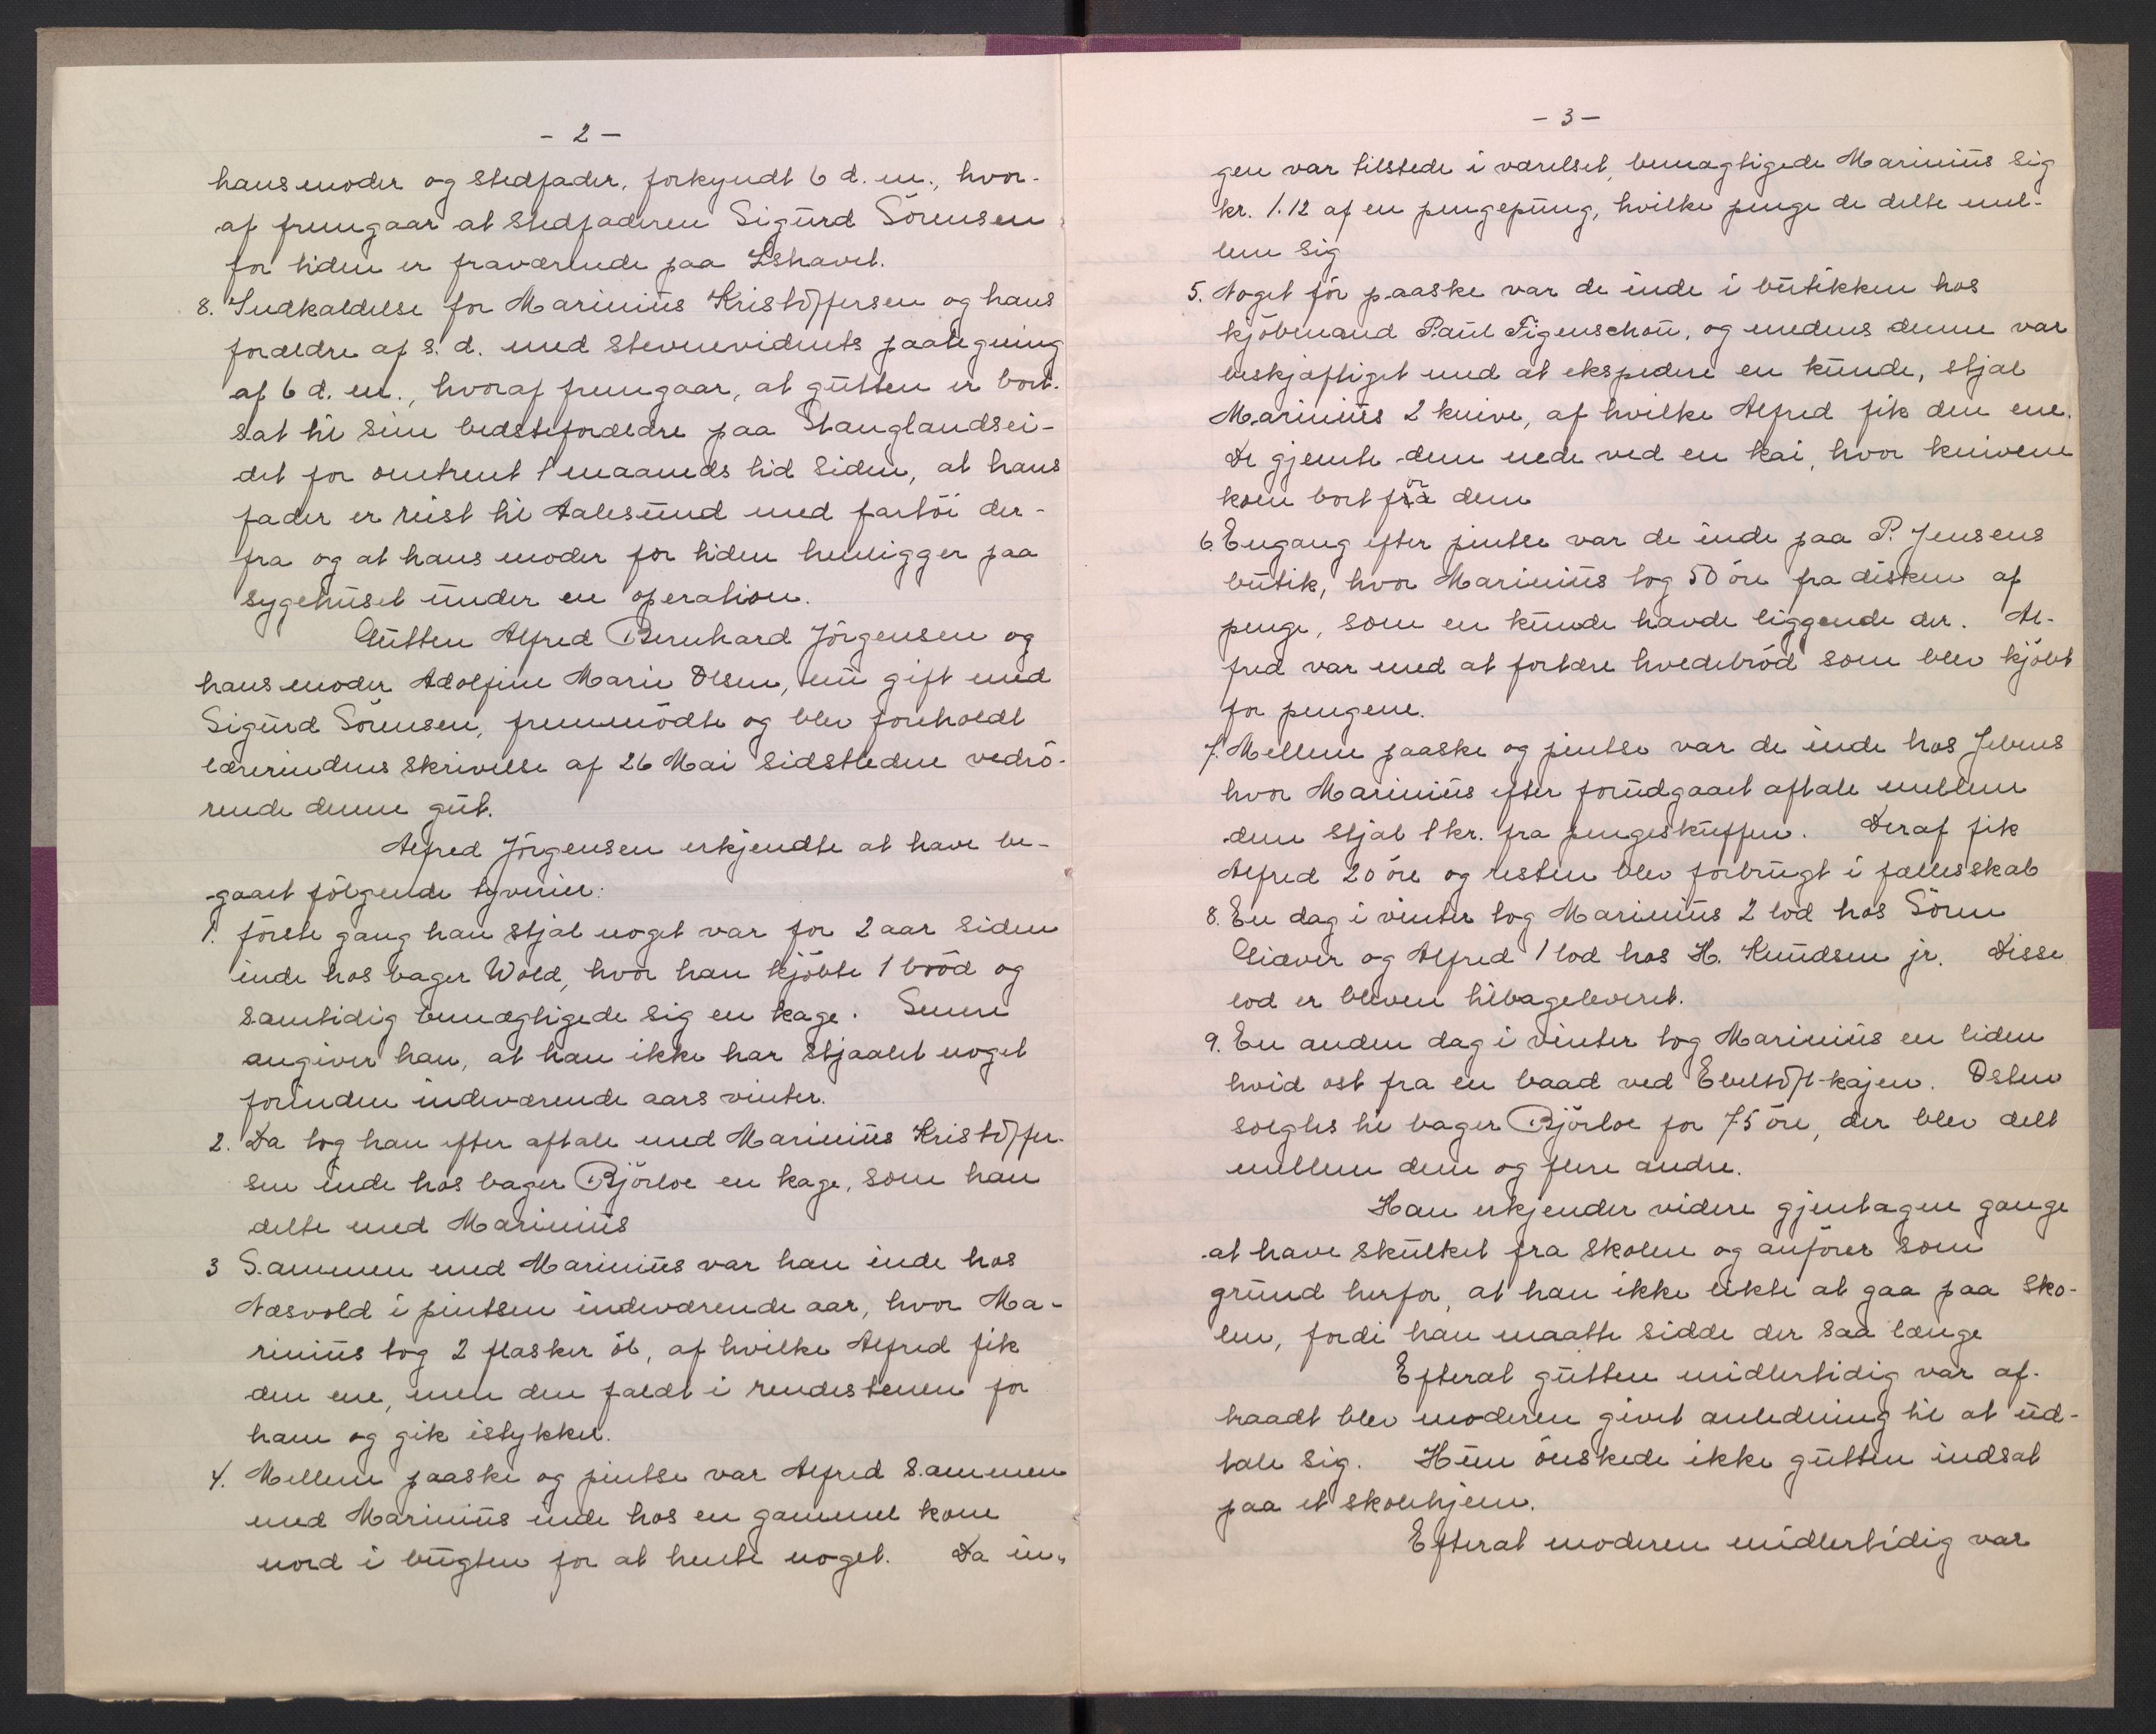 - 2 -
hans moder og stedfader, forkyndt 6 d. m., hvor-
af fremgaar at stedfaderen Sigurd Sörensen
for tiden er fraværende paa Ishavet.
8. Indkaldelse for Marinius Kristoffersen og hans
forældre af s. d. med stevnevidnets paategning
af 6 d. m., hvoraf fremgaar, at gutten er bort-
sat til sine bedsteforældre paa Stanglandsei-
det for omtrent 1 maaneds tid siden, at hans
fader er reist til Aalesund med fartöi der-
fra og at hans moder for tiden henligger paa
sygehuset under en operation.
Gutten Alfred Bernhard Jörgensen og
hans moder Adolfine Marie Olsen, nu gift med
Sigurd Sörensen, fremmödte og blev foreholdt
lærerindens skrivelse af 26 Mai sidstleden vedrö-
rende denne gut.
Alfred Jörgensen erkjendte at have be-
gaaet fölgende tyverier:
1. förste gang han stjal noget var for 2 aar siden
inde hos bager Wold, hvor han kjöbte 1 bröd og
samtidig bemægtigede sig en kage. Senere
angiver han, at han ikke har stjaalet noget
forinden indeværende aars vinter.
2. Da tog han efter aftale med Marinius Kristoffer-
sen inde hos bager Björloe en kage, som han
delte med Marinius
3 Sammen med Marinius var han inde hos
Næsvold i pintsen indeværende aar, hvor Ma-
rinius tog 2 flasker öl, af hvilke Alfred fik
den ene, men den faldt i rendestenen for
ham og gik istykker.
4. Mellem paaske og pintse var Alfred sammen
med Marinius inde hos en gammel kone
nord i bugten for at hente noget. Da in-
- 3 -
gen var tilstede i værelset, bemagtigede Marinius sig
kr. 1.12 af en pengepung, hvilke penge de delte mel-
lem sig
5. Noget för paaske var de inde i butikken hos
kjöbmand Paul Figenschou, og medens denne var
beskjæftiget med at ekspedere en kunde, stjal
Marinius 2 knive, af hvilke Alfred fik den ene.
De gjemte dem nede ved en kai, hvor knivene
kom bort for dem
6. Engang efter pintse var de inde paa P. Jensens
butik, hvor Marinius tog 50 öre fra disken af
penge, som en kunde havde liggende der. Al-
fred var med at fortære hvedebröd som blev kjöbt
for pengene.
7. Mellem paaske og pintse var de inde hos Jebens
hvor Marinius efter forudgaaet aftale mellem
dem stjal 1 kr. fra pengeskuffen. Deraf fik
Alfred 20 öre og resten blev forbrugt i fællesskab
8. En dag i vinter tog Marinius 2 lod hos Sören
Giæver og Alfred 1 lod hos H. Knudsen jr. Disse
lod er bleven tilbageleveret.
9. En anden dag i vinter tog Marinius en liden
hvid ost fra en baad ved Ebeltoft-kajen. Osten
solgtes til bager Björloe for 75 öre, der blev delt
mellem dem og flere andre.
Han erkjender videre gjentagen gange
at have skulket fra skolen og anförer som
grund herfor, at han ikke likte at gaa paa sko-
len, fordi han maatte sidde der saa længe
Efterat gutten midlertidig var af-
traadt blev moderen givet anledning til at ud-
tale sig. Hun önskede ikke gutten indsat
paa et skolehjem.
Efterat moderen midlertidig var